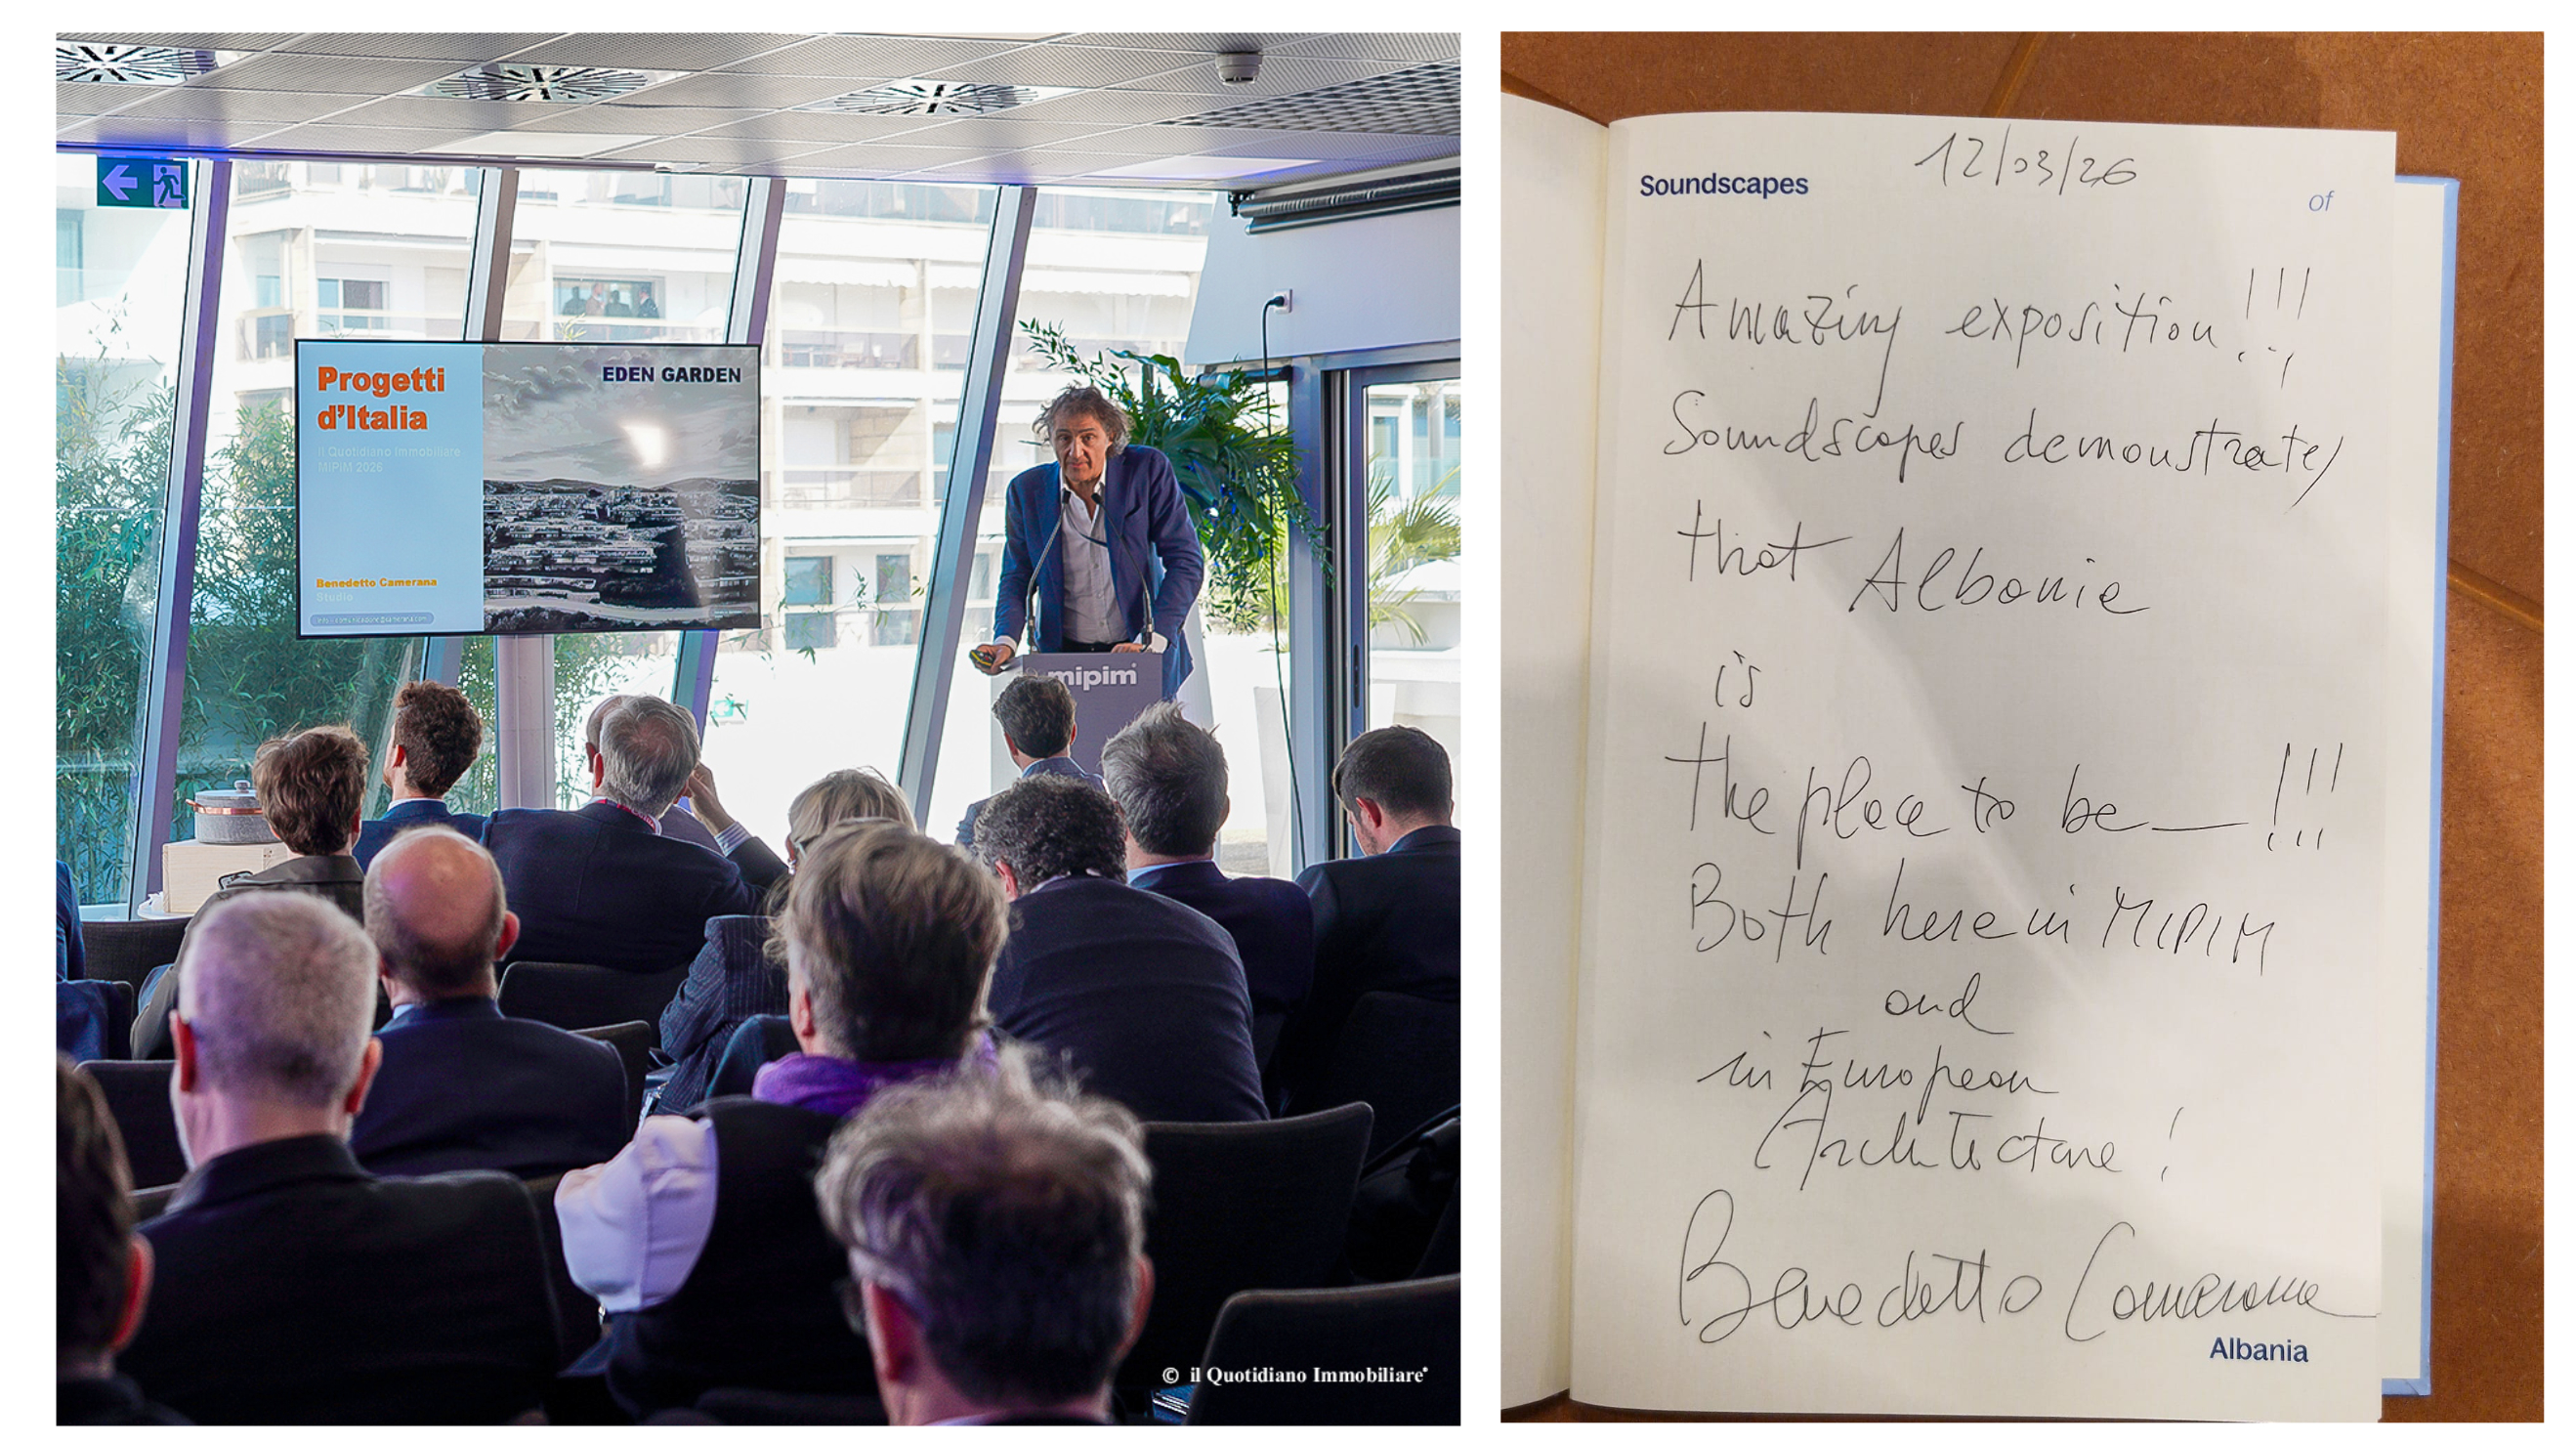 Progetti
d'Italia
Il Quotidiano Immobiliare
MIPIM 2026
EDEN GARDEN
Benedetto Camerana
Studio
mipim
© il Quotidiano Immobiliare
12/03/26
Soundscapes
of
Amazing exposition!!!
Soundscapes demonstrates
that Albanie
is
the place to be—!!!
Both here in MIPIM
and
in European
Architecture!
Benedetto Camerana
Albania